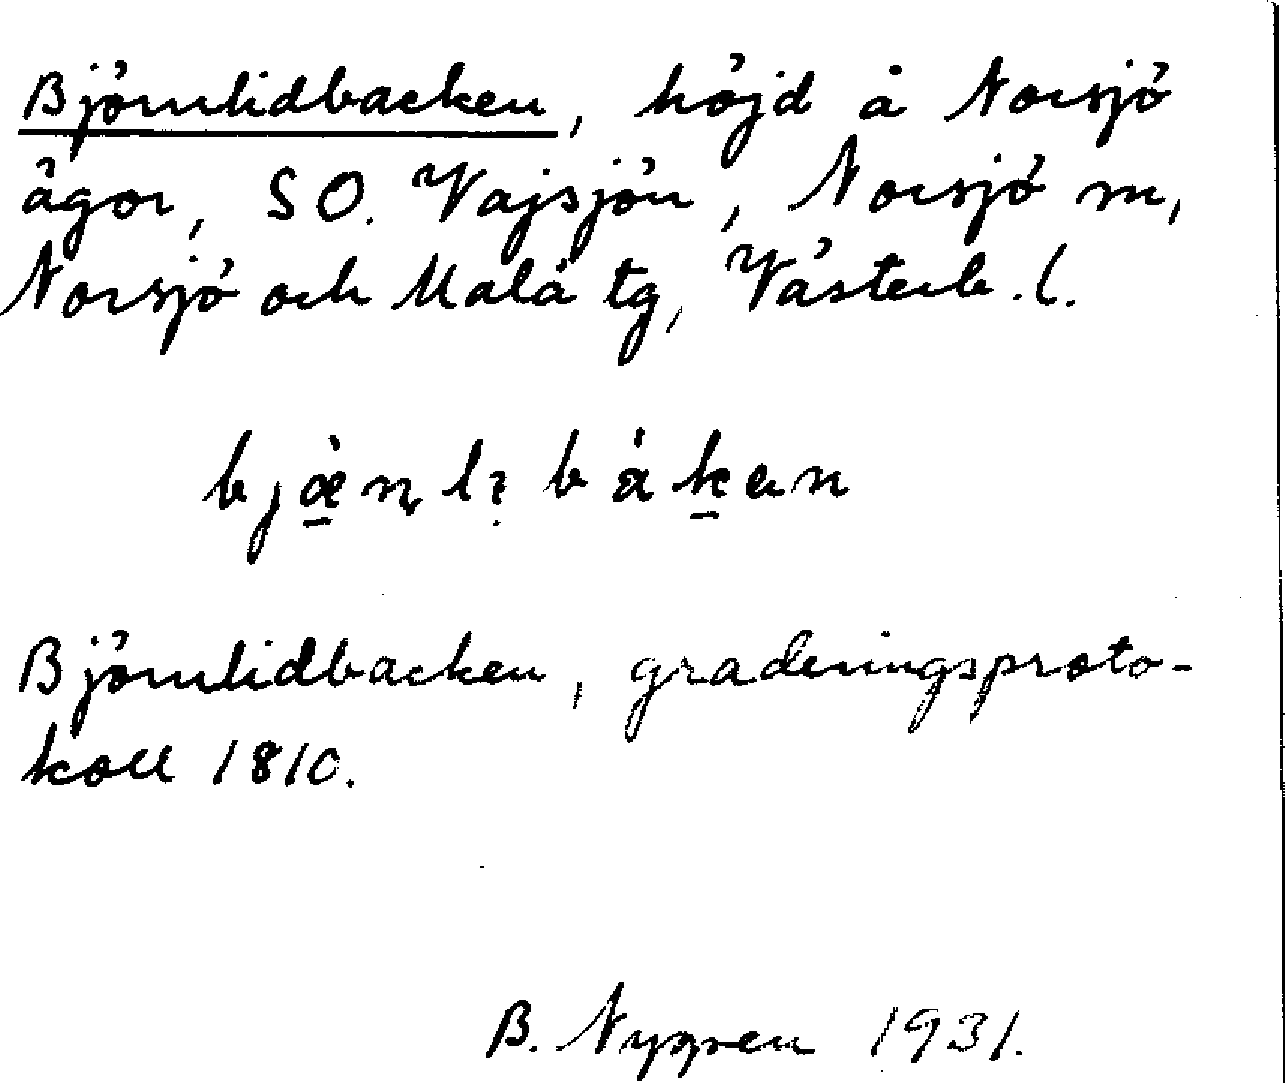 Björnlidbacken, höjd å Norsjö
ägor, SO. Vajsjön, Norsjö sn,
Norsjö och Malå tg, Västerb. l.
Björnlidbacken, graderingsproto-
koll 1810.
B. Nygren 1931.